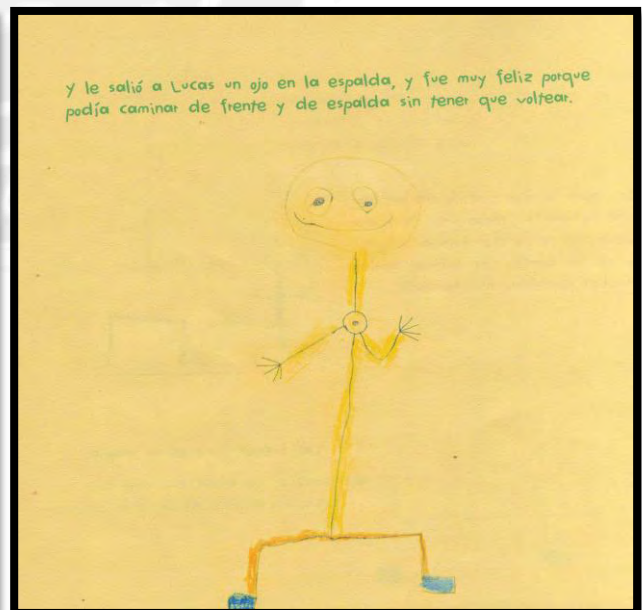 Y le salió a Lucas un ojo en la espalda, y fue muy feliz porque
podía caminar de frente y de espalda sin tener que voltear.